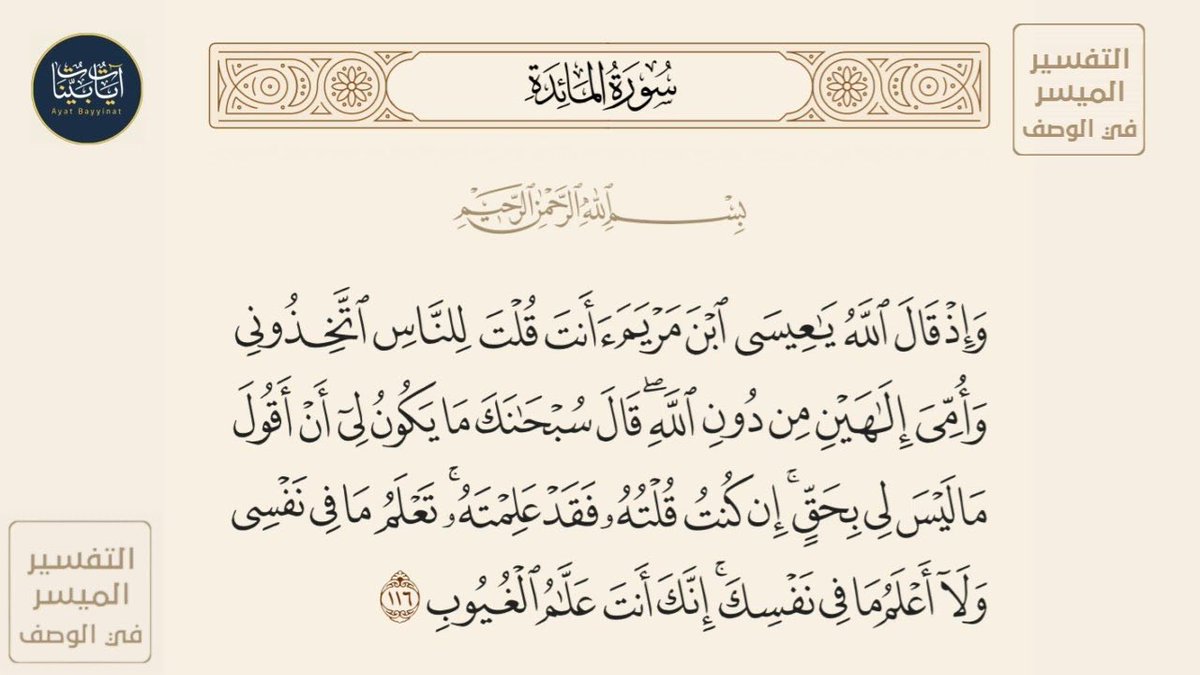 آيات بينات
Ayat Bayyinat
سُورَةُ المَائِدَةِ
التفسير
الميسر
في الوصف
بِسْمِ ٱللَّهِ ٱلرَّحْمَٰنِ ٱلرَّحِيمِ
وَإِذْ قَالَ ٱللَّهُ يَٰعِيسَى ٱبْنَ مَرْيَمَ ءَأَنتَ قُلْتَ لِلنَّاسِ ٱتَّخِذُونِي
وَأُمِّيَ إِلَٰهَيْنِ مِن دُونِ ٱللَّهِۖ قَالَ سُبْحَٰنَكَ مَا يَكُونُ لِيٓ أَنْ أَقُولَ
مَا لَيْسَ لِي بِحَقٍّۚ إِن كُنتُ قُلْتُهُۥ فَقَدْ عَلِمْتَهُۥۚ تَعْلَمُ مَا فِي نَفْسِي
وَلَآ أَعْلَمُ مَا فِي نَفْسِكَۚ إِنَّكَ أَنتَ عَلَّٰمُ ٱلْغُيُوبِ ١١٦
التفسير
الميسر
في الوصف